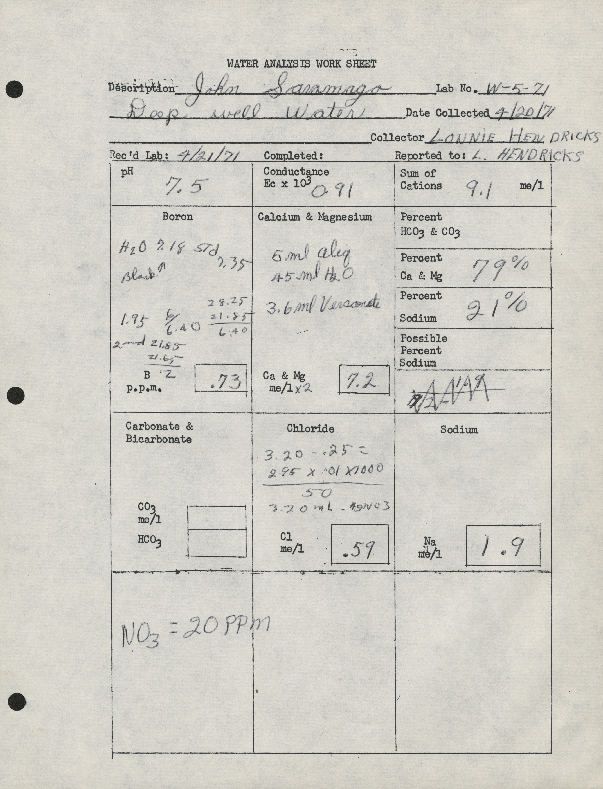 WATER ANALYSIS WORK SHEET
Description John Lab No. W-5-71
Deep well Water Date Collected 4/20/71
Collector LONNIE HENDRICKS
Rec'd Lab: 4/21/71 Completed: Reported to: L. HENDRICKS
pH
7.5
Conductance
Ec x 10³ 0.91
Sum of
Cations 9.1 me/l
Boron
H2O 7.18 STD
7.35
Blank
28.25
1.95 6/6.40 21.85
6.40
2nd 21.85
21.65
.2
B
p.p.m. .73
Calcium & Magnesium
5 ml aliq
45 ml H2O
3.6 ml Versenate
Ca & Mg
me/l x2 7.2
Percent
HCO3 & CO3
Percent
Ca & Mg 79%
Percent
Sodium 21%
Possible
Percent
Sodium
Carbonate &
Bicarbonate
CO3
me/l
HCO3
Chloride
3.20 - .25 =
2.95 x .01 x 1000
50
3.20 mL AgNO3
Cl
me/l .59
Sodium
Na
me/l 1.9
NO3 = 20 PPM